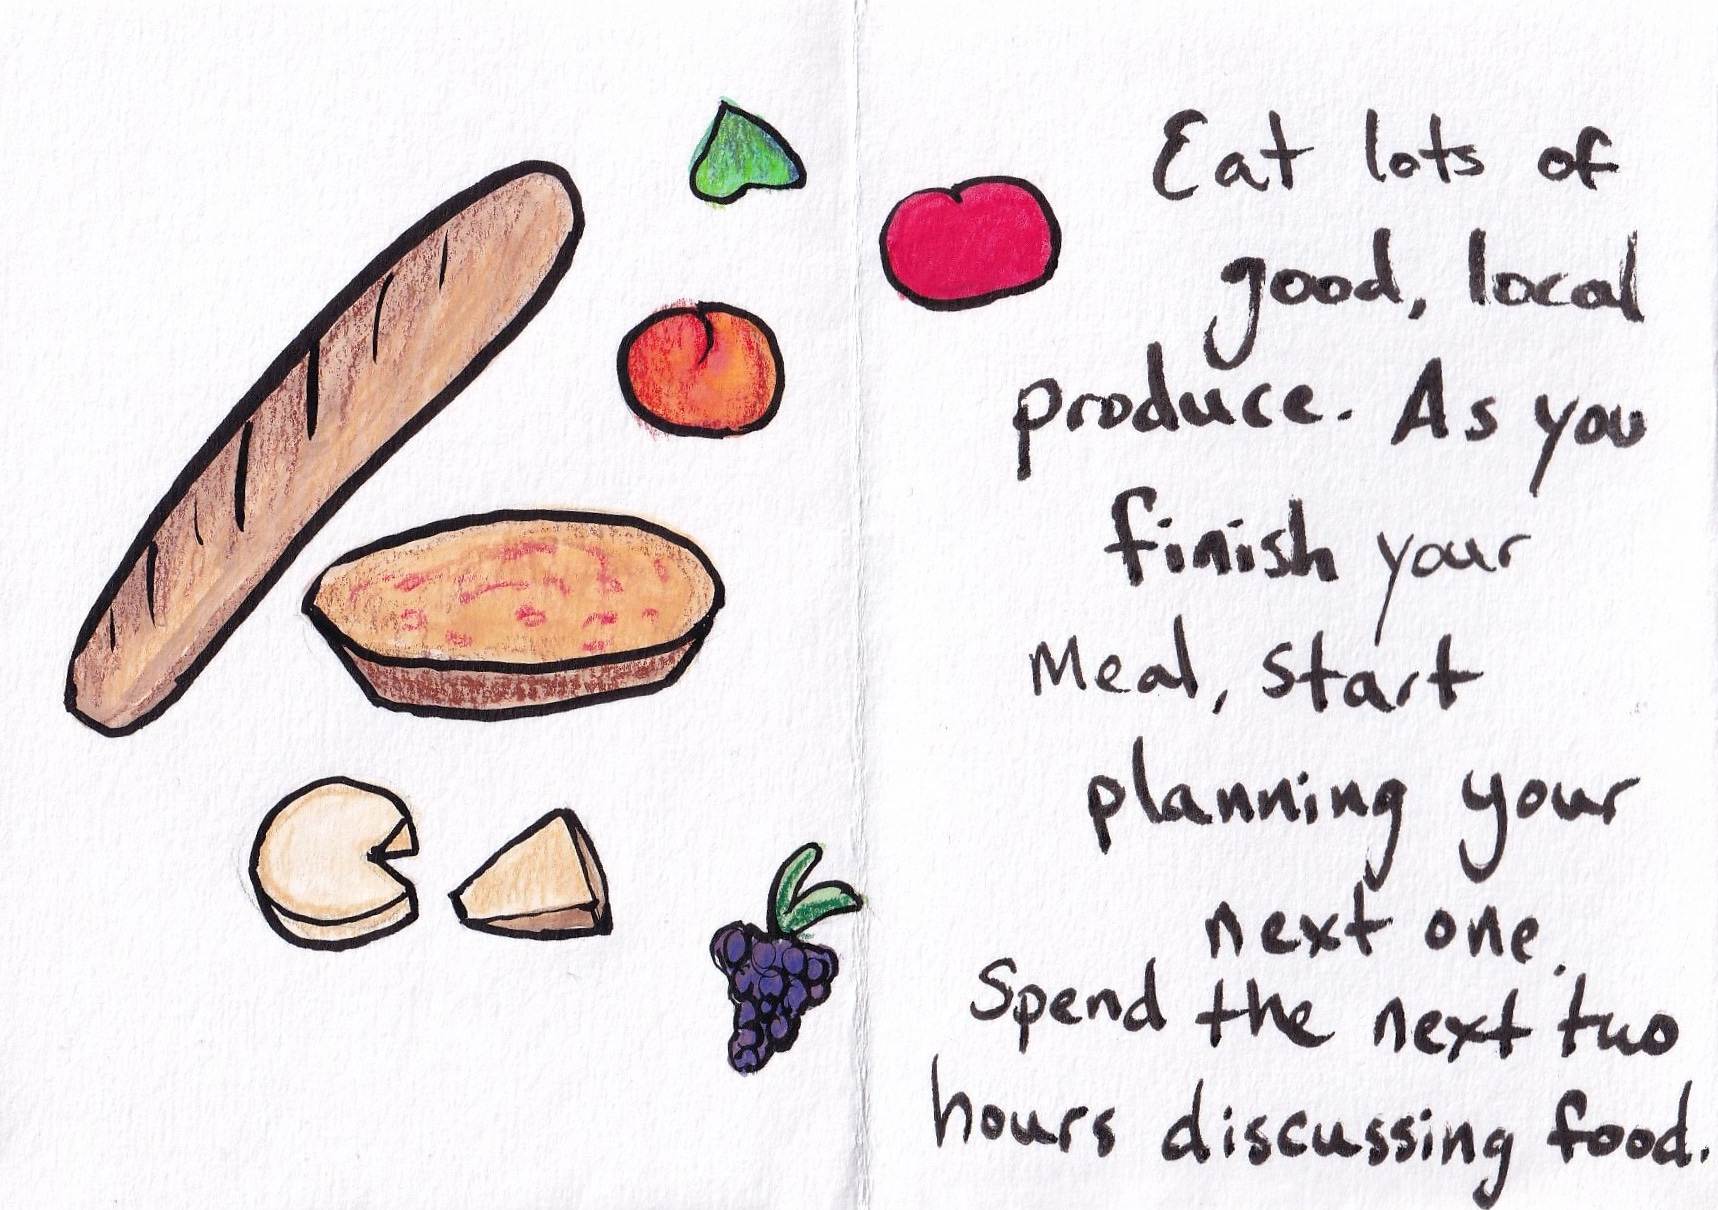 Eat lots of
good, local
produce. As you
finish your
Meal, start
planning your
next one.
Spend the next two
hours discussing food.